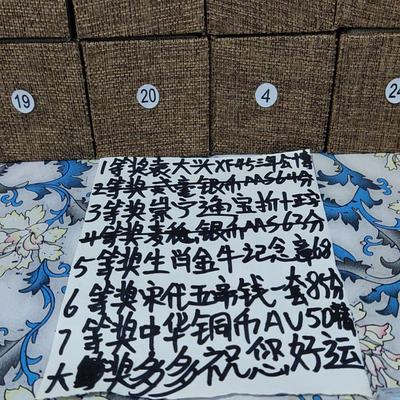 19
20
4
24
1等奖袁大头XF45三年公博
2等奖 银币MS64分
3等奖崇宁通宝折十
4等奖 银币MS62分
5等奖生肖金牛记念章68
6等奖宋代五帝钱一套85分
7等奖中华铜币AU50
大奖多多祝您好运